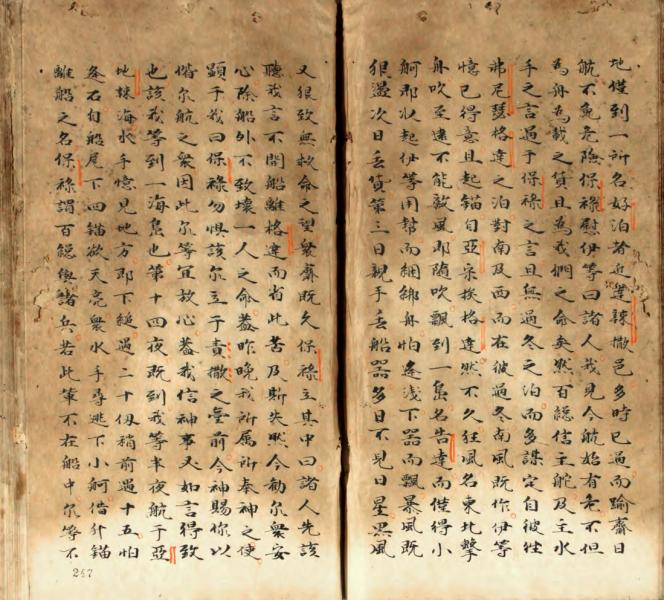 地僅到一所名好泊者近達辣撒邑多時已過而踰齋日
航不免危險保祿慰伊等曰諸人我見今航始有危不但
為舟為載之貨且為我們之命矣然百總信主舵及主水
手之言過于保祿之言且無過冬之泊而多謀定自彼徃
弗尼瑟格達之泊對南及西而在彼過冬南風既作伊等
憶已得意且起錨自亞梁挨格達然不久狂風名東北擊
舟吹至逩不能敵風即隨吹飄到一島名告達而僅得小
舸即收起伊等用幇而綑綁舟怕逢浅下器而飄暴風既
狠過次日丟貨第三日親手丟船器多日不見日星黑風
又狠致無救命之望衆齋既久保祿立其中曰諸人先該
聽我言不開船離格達而省此苦及斯失然今勸尔衆安
心除船外不致壞一人之命蓋昨晚我所属所奉神之使
顯于我曰保祿勿惧該尔立于責撒之臺前今神賜你以
偕尔航之衆因此尔等宜放心蓋我信神事必如言得致
也該我等到一海島也第十四夜既到我等半夜航于亞
地辣海水手憶見地方即下縋過二十仭稍前過十五怕
逢石自船尾下四錨欲天亮衆水手尋逃下小舸偕升錨
離船之名保祿謂百總與諸兵若此輩不在船中尔等不
247